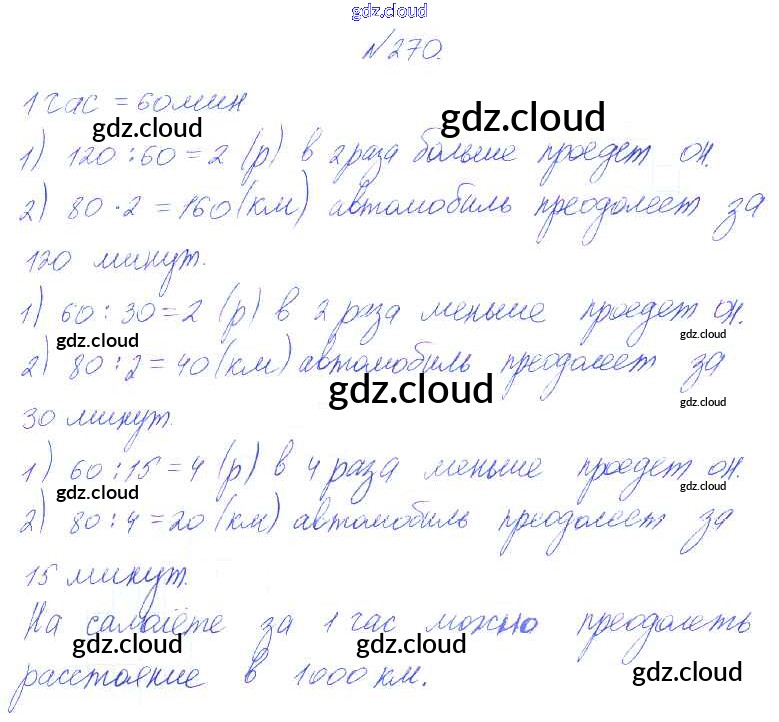 gdz.cloud
№270.
1 час = 60мин
gdz.cloud
gdz.cloud
1) 120 : 60 = 2 (р) в 2 раза больше проедет он.
2) 80 · 2 = 160 (км) автомобиль преодолеет за
gdz.cloud
120 минут.
1) 60 : 30 = 2 (р) в 2 раза меньше проедет он.
gdz.cloud
gdz.cloud
2) 80 : 2 = 40 (км) автомобиль преодолеет за
gdz.cloud
gdz.cloud
30 минут.
1) 60 : 15 = 4 (р) в 4 раза меньше проедет он.
gdz.cloud
gdz.cloud
2) 80 : 4 = 20 (км) автомобиль преодолеет за
15 минут.
На самолёте за 1 час можно преодолеть
gdz.cloud
gdz.cloud
gdz.cloud
расстояние в 1000 км.